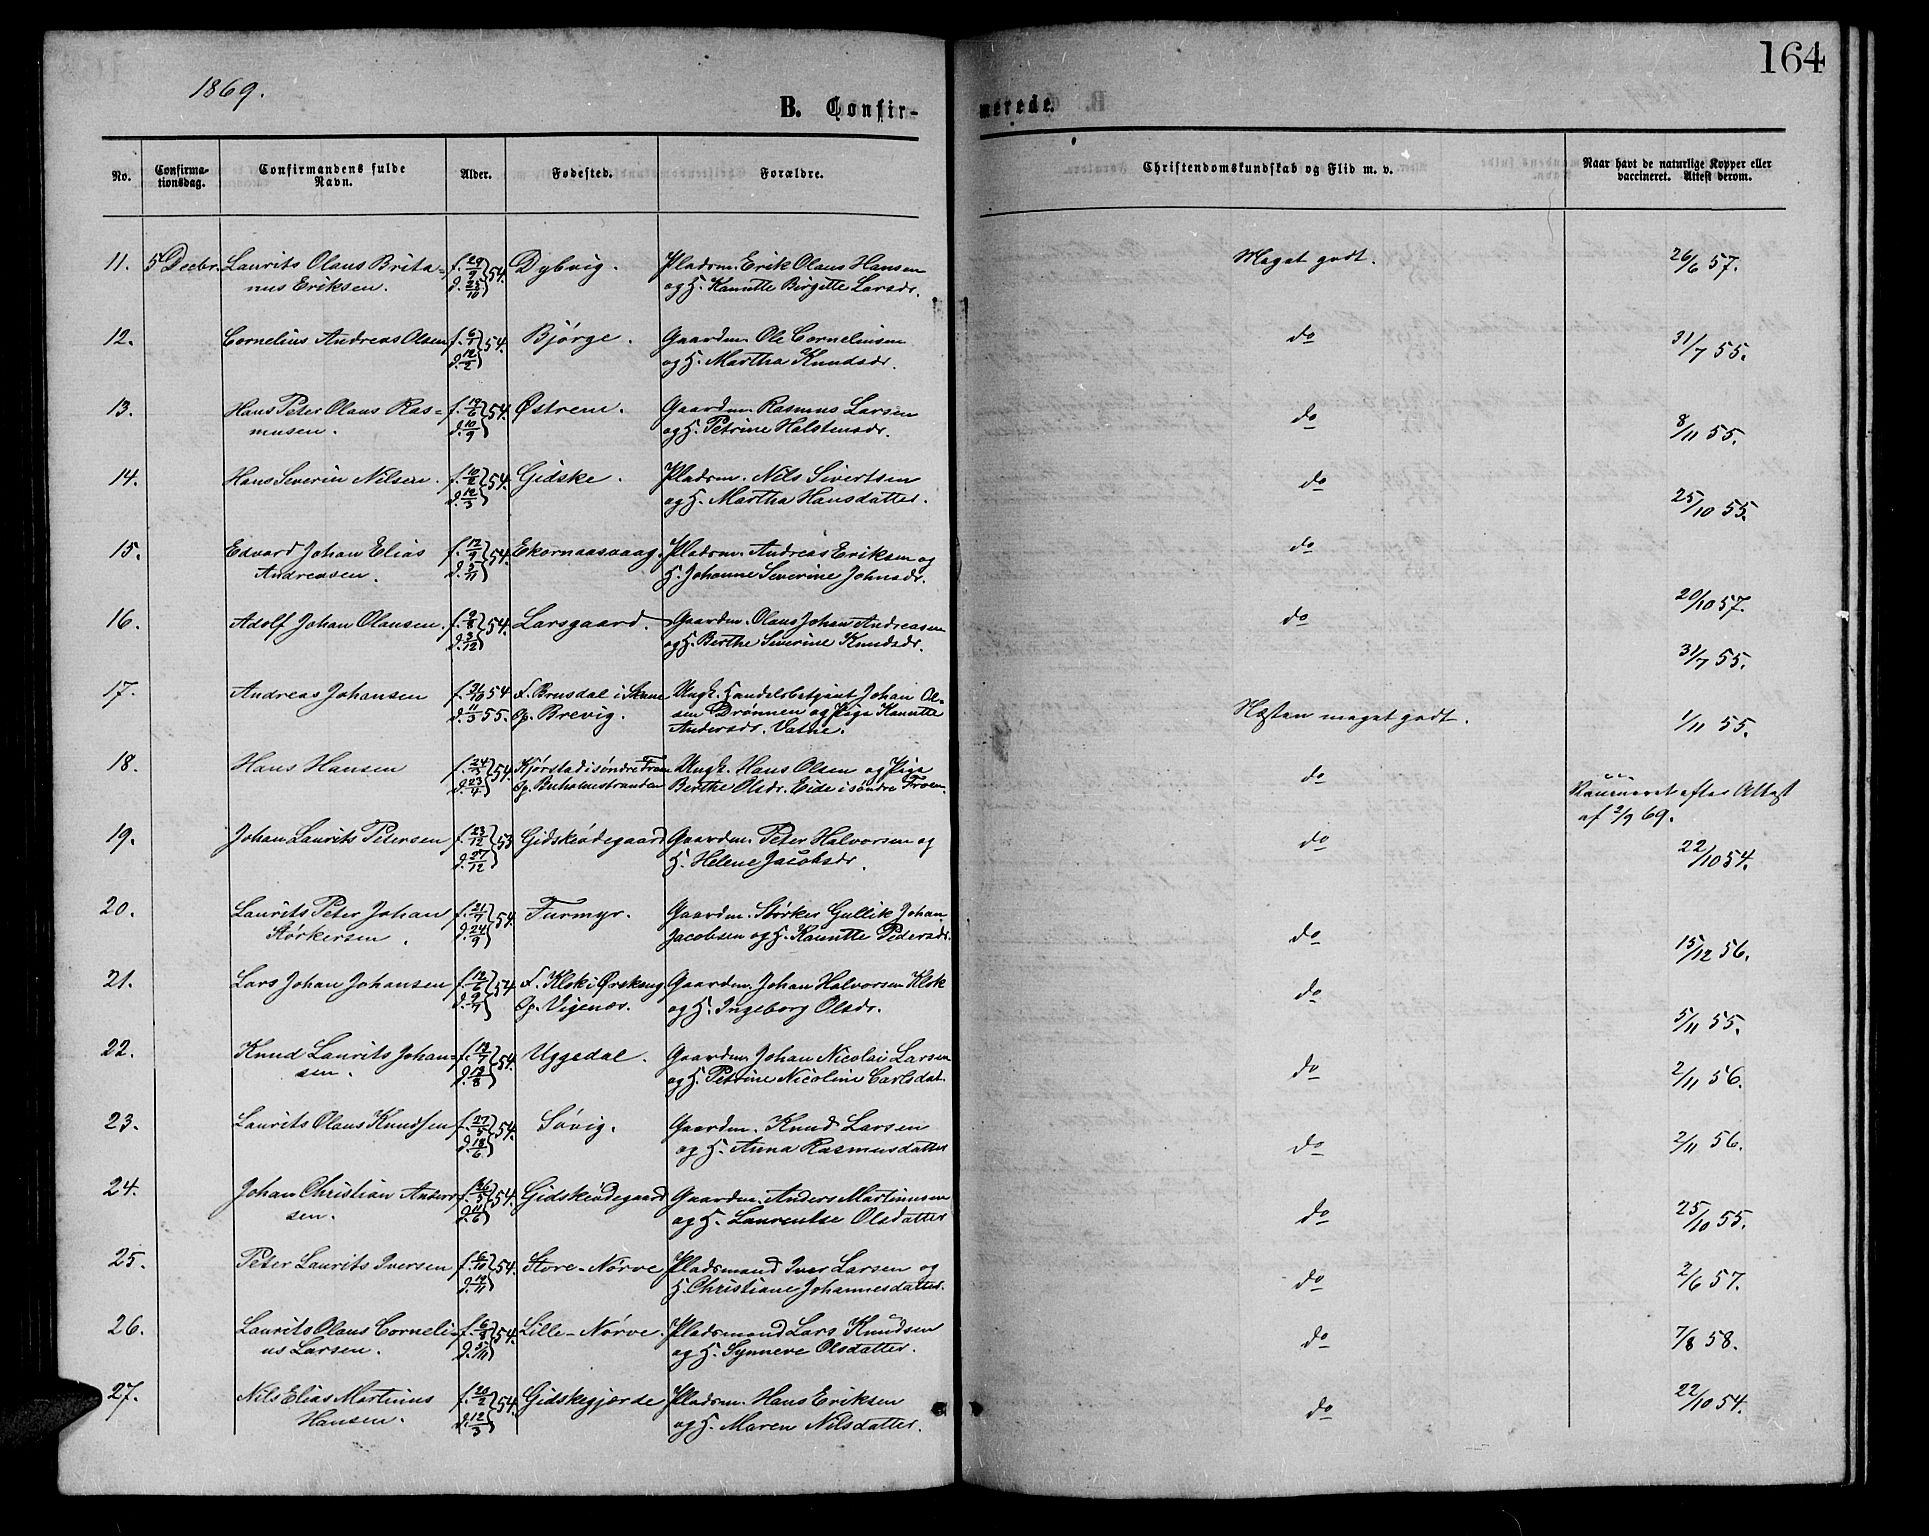 164
1869.
B. Confirmerede.
No.
Confirmationsdag.
Confirmandens fulde Navn.
Alder.
Fødested.
Forældre.
Christendomskundskab og Flid m. v.
Naar havt de naturlige Kopper eller vaccineret. Attest derom.
11. 5 Decbr. Laurits Olaus Brita- f. 29/9 54. Dybvig. Pladsm. Erik Olaus Hansen Meget godt. 26/6 57.
nus Eriksen. d. 25/10 og H. Kanutte Birgitte Larsdr.
12. Cornelius Andreas Olsen f. 6/1 54. Bjørge. Gaardm. Ole Corneliusen do 31/7 55.
d. 12/2 og H. Martha Knudsdr.
13. Hans Peter Olaus Ras= f. 19/6 54. Østrem. Gaardm. Rasmus Larsen do 8/11 55.
musen. d. 10/9 og H. Petrine Halstensdr.
14. Hans Severin Nilsen. f. 10/2 54. Gidske. Pladsm. Nils Sivertsen do 25/10 55.
d. 12/3 og H. Martha Hansdatter.
15. Edvard Johan Elias f. 12/9 54. Ekornaasvaag. Pladsm. Andreas Eriksen og do 20/10 57.
Andreasen. d. 5/11 H. Johanne Severine Johnsdr.
16. Adolf Johan Olausen. f. 9/8 54. Larsgaard. Gaardm. Olaus Johan Andreasen do 31/7 55.
d. 3/12 og H. Berthe Severine Knudsdr.
17. Andreas Johansen f. 31/10 54 F. Brusdal i Skaue Ungk. Handelsbetjent Johan Ol- Næsten meget godt. 1/11 55.
d. 11/3 55. Op. Brevig. sen Drønnen og Pige Kanutte
Andersdr. Vatne.
18. Hans Hansen f. 24/3 54. Kjørstad i søndre Fron Ungk. Hans Olsen og Pige do
d. 23/4 Op. Buholmstranden Berthe Olsdr. Eide i søndre Froen. Vaccineret efter Attest
af 2/9 69.
19. Johan Laurits Petersen f. 23/12 53 Gidskeødegaard Gaardm. Peter Halvorsen og do 22/10 54.
d. 27/12 H. Helene Jacobsdr.
20. Laurits Peter Johan f. 21/7 54. Furmyr. Gaardm. Størker Gullik Johan do 15/12 56.
Størkersen. d. 24/9 Jacobsen og H. Kanutte Pedersdr.
21. Lars Johan Johansen f. 12/6 54. F. Klok i Ørskoug Gaardm. Johan Halvorsen Klok do 5/11 55.
d. 9/7 Op. Vigenæs. og H. Ingeborg Olsdr.
22. Knud Laurits Johan= f. 12/7 54. Uggedal. Gaardm. Johan Nicolai Larsen do 2/11 56.
sen. d. 13/8 og H. Petrine Nicoline Carlsdat.
23. Laurits Olaus Knudsen f. 27/5 54. Søvig. Gaardm. Knud Larsen do 2/11 56.
d. 18/6 og H. Anna Rasmusdatter
24. Johan Christian Anders- f. 26/5 54. Gidskeødegaard Gaardm. Anders Martinusen do 25/10 55.
sen. d. 11/6 og H. Laurentse Olsdatter
25. Peter Laurits Iversen f. 6/10 54. Store-Nørve Pladsmand Iver Larsen og do 2/6 57.
d. 19/11 H. Christiane Johannesdatter.
26. Laurits Olaus Corneli- f. 6/8 54. Lille-Nørve. Pladsmand Lars Knudsen do 7/8 58.
us Larsen. d. 5/11 og H. Synneve Olsdatter.
27. Nils Elias Martinus f. 20/2 54. Gidskegjerde Pladsm. Hans Eriksen do 22/10 54.
Hansen. d. 12/3 og H. Maren Nilsdatter.